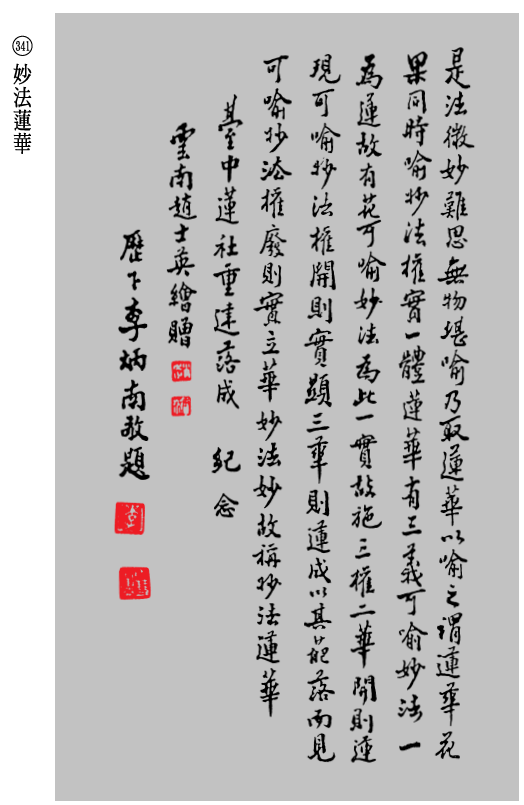 341 妙法蓮華
是法微妙難思無物堪喻乃取蓮華以喻之謂蓮華花
果同時喻妙法權實一體蓮華有三義可喻妙法一
為蓮故有花可喻妙法為此一實故施三權二華開則蓮
現可喻妙法權開則實顯三華則蓮成以其花落而見
可喻妙法權廢則實立華妙法妙故稱妙法蓮華
臺中蓮社重建落成 紀念
雲南趙士英繪贈
歷下李炳南敬題